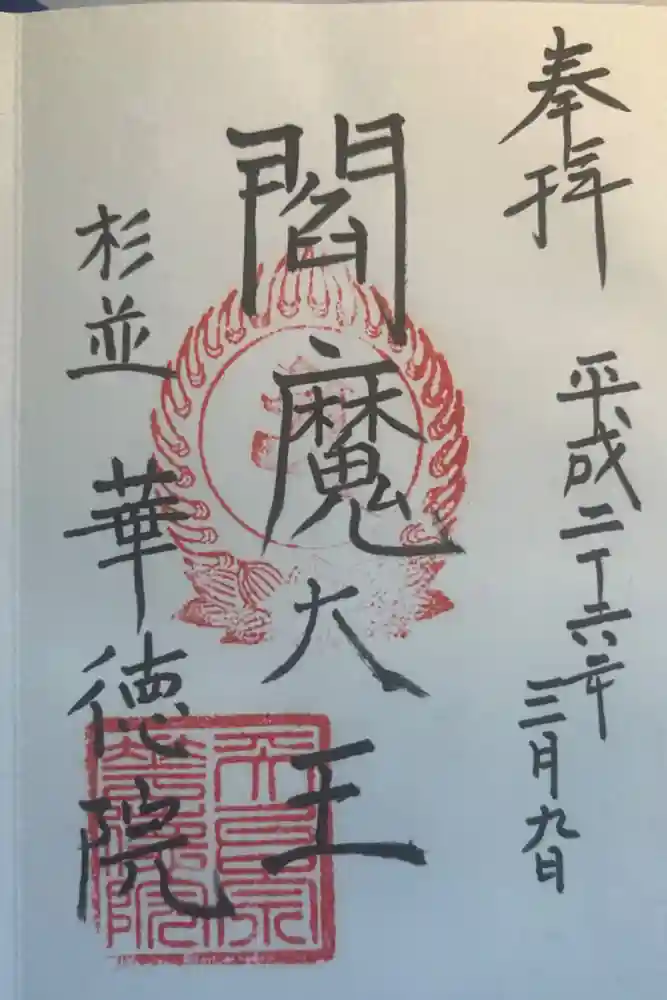 奉拝
平成二十六年
三月九日
閻魔大王
杉並 華徳院